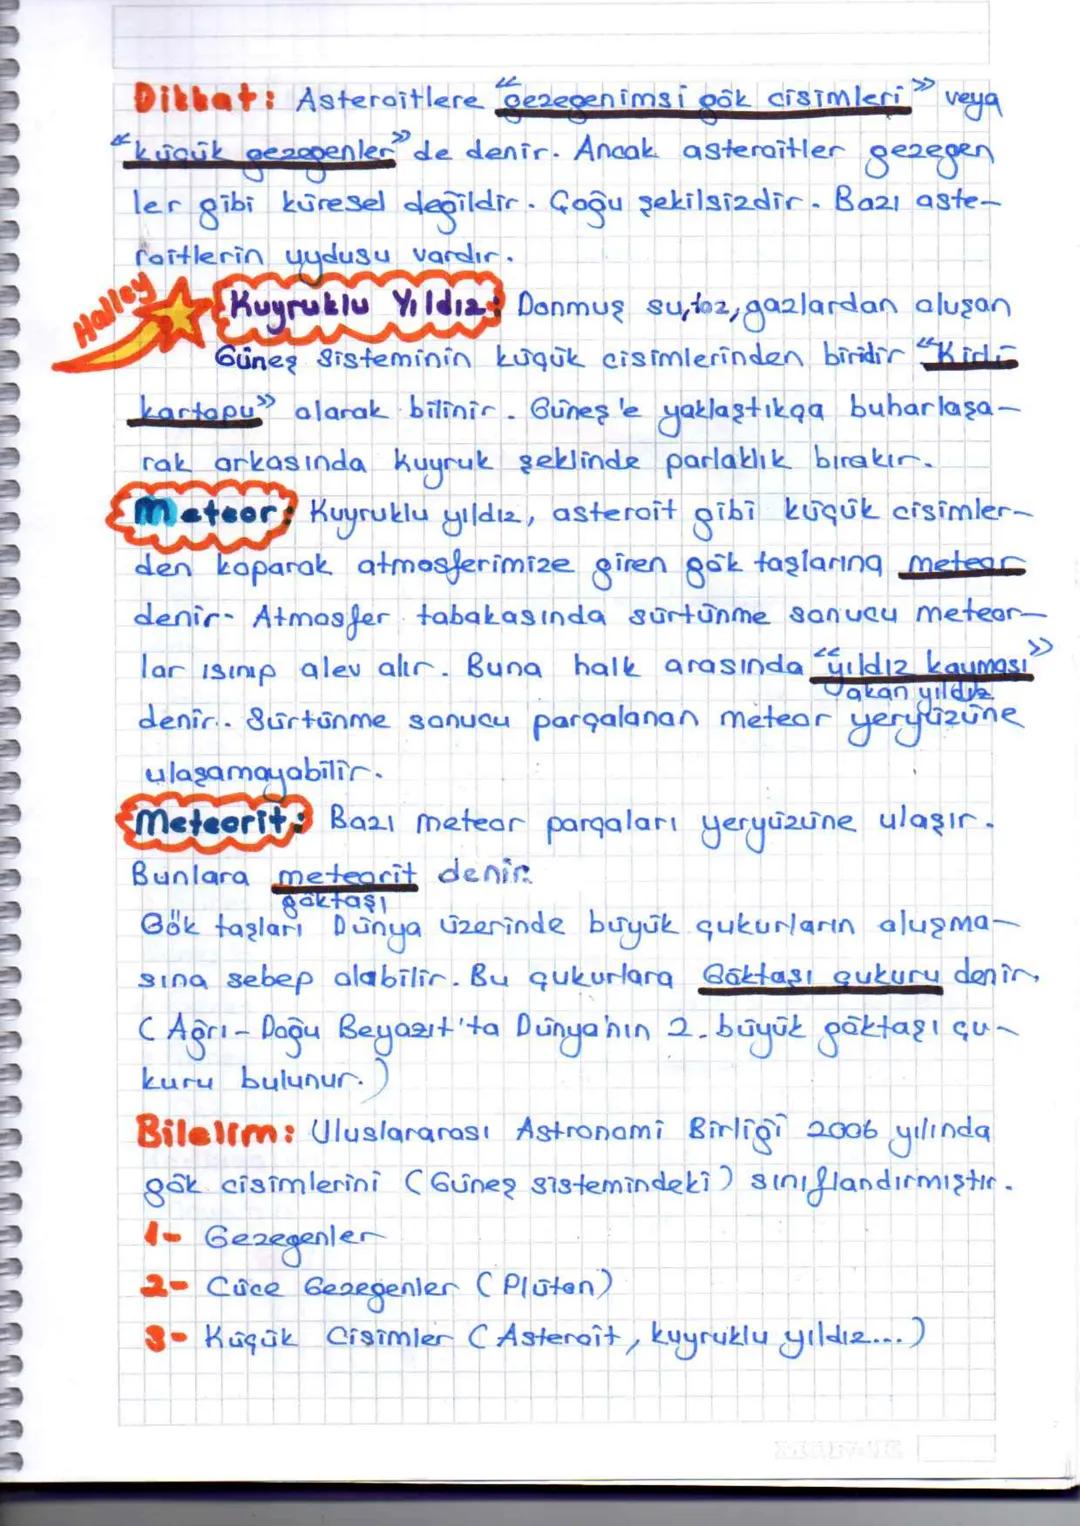 Dikkat: Asteroitlere "gezegenimsi gök cisimleri" veya
"küçük gezegenler" de denir. Ancak asteroitler gezegen
ler gibi küresel değildir. Çoğu şekilsizdir. Bazı aste-
roitlerin uydusu vardır.
Halley
Kuyruklu Yıldız: Donmuş su, toz, gazlardan oluşan
Güneş sisteminin küçük cisimlerinden biridir "Kirli
kartopu" olarak bilinir. Güneş'e yaklaştıkça buharlaşa-
rak arkasında kuyruk şeklinde parlaklık bırakır.
Meteor: Kuyruklu yıldız, asteroit gibi küçük cisimler-
den koparak atmosferimize giren gök taşlarına meteor
denir. Atmosfer tabakasında sürtünme sonucu meteor-
lar ısınıp alev alır. Buna halk arasında "yıldız kayması"
akan yıldız
denir.. Sürtünme sonucu parçalanan meteor yeryüzüne
ulaşamayabilir.
Meteorit: Bazı meteor parçaları yeryüzüne ulaşır.
Bunlara meteorit denir.
göktaşı
Gök taşları Dünya üzerinde büyük çukurların oluşma-
sına sebep olabilir. Bu çukurlara Göktaşı çukuru denir.
(Ağrı-Doğu Beyazıt'ta Dünya'nın 2. büyük göktaşı çu-
kuru bulunur.)
Bilelim: Uluslararası Astronomi Birliği 2006 yılında
gök cisimlerini (Güneş sistemindeki) sınıflandırmıştır.
1- Gezegenler
2- Cüce Gezegenler (Plüton)
3- Küçük Cisimler (Asteroit, kuyruklu yıldız...)